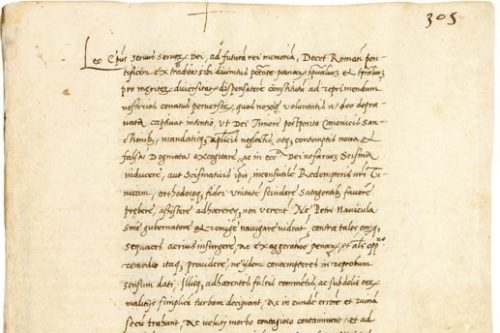 305
Leo Epus servus servor Dei, ad futuram rei memoria, Decet Roman pon-
tificem ex tradita sibi divinitus potestate penar spualium et tpalium
pro meritor diversitate dispensatorem constitutu ad reprimendum
nefarios conatus perversor, quos noxie voluntatis a deo depra-
vata captivat intentio, ut Dei Timore postposito Canonicis San-
ctionib, mandatisq aplicis neglectis, atq contemptis nova et
falsa Dogmata excogitare, ac in eccia Dei nefarium Scisma
inducere, aut Scismaticis ipsis, inconsutile Redemptoris nri Tu-
nicam, orthodoxeq fidei unitate scindere Satagentib favore
prebere, assistere adherereq non verent Ne Petri Navicula
sine gubernatore et remige navigare videat, contra tales eorq
sequaces acrius insurgere, ac exaggeratione penar, et als oppor
remedio itaq providere, ne ijdem contemptores in reprobum
sensum dati, Illisq adherentes falsis commentis, ac subdolis eor
malitijs simplice turbam decipiant, ac in eunde errore et ruina
secu trahant, ac veluti morbo contagioso contaminent, et ad